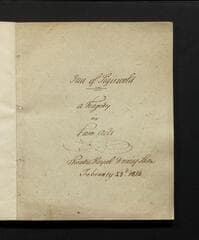 Ina of Sigiswold
a Tragedy
in
Five Acts
Theatre Royal Drury Lane
February 23d 1816